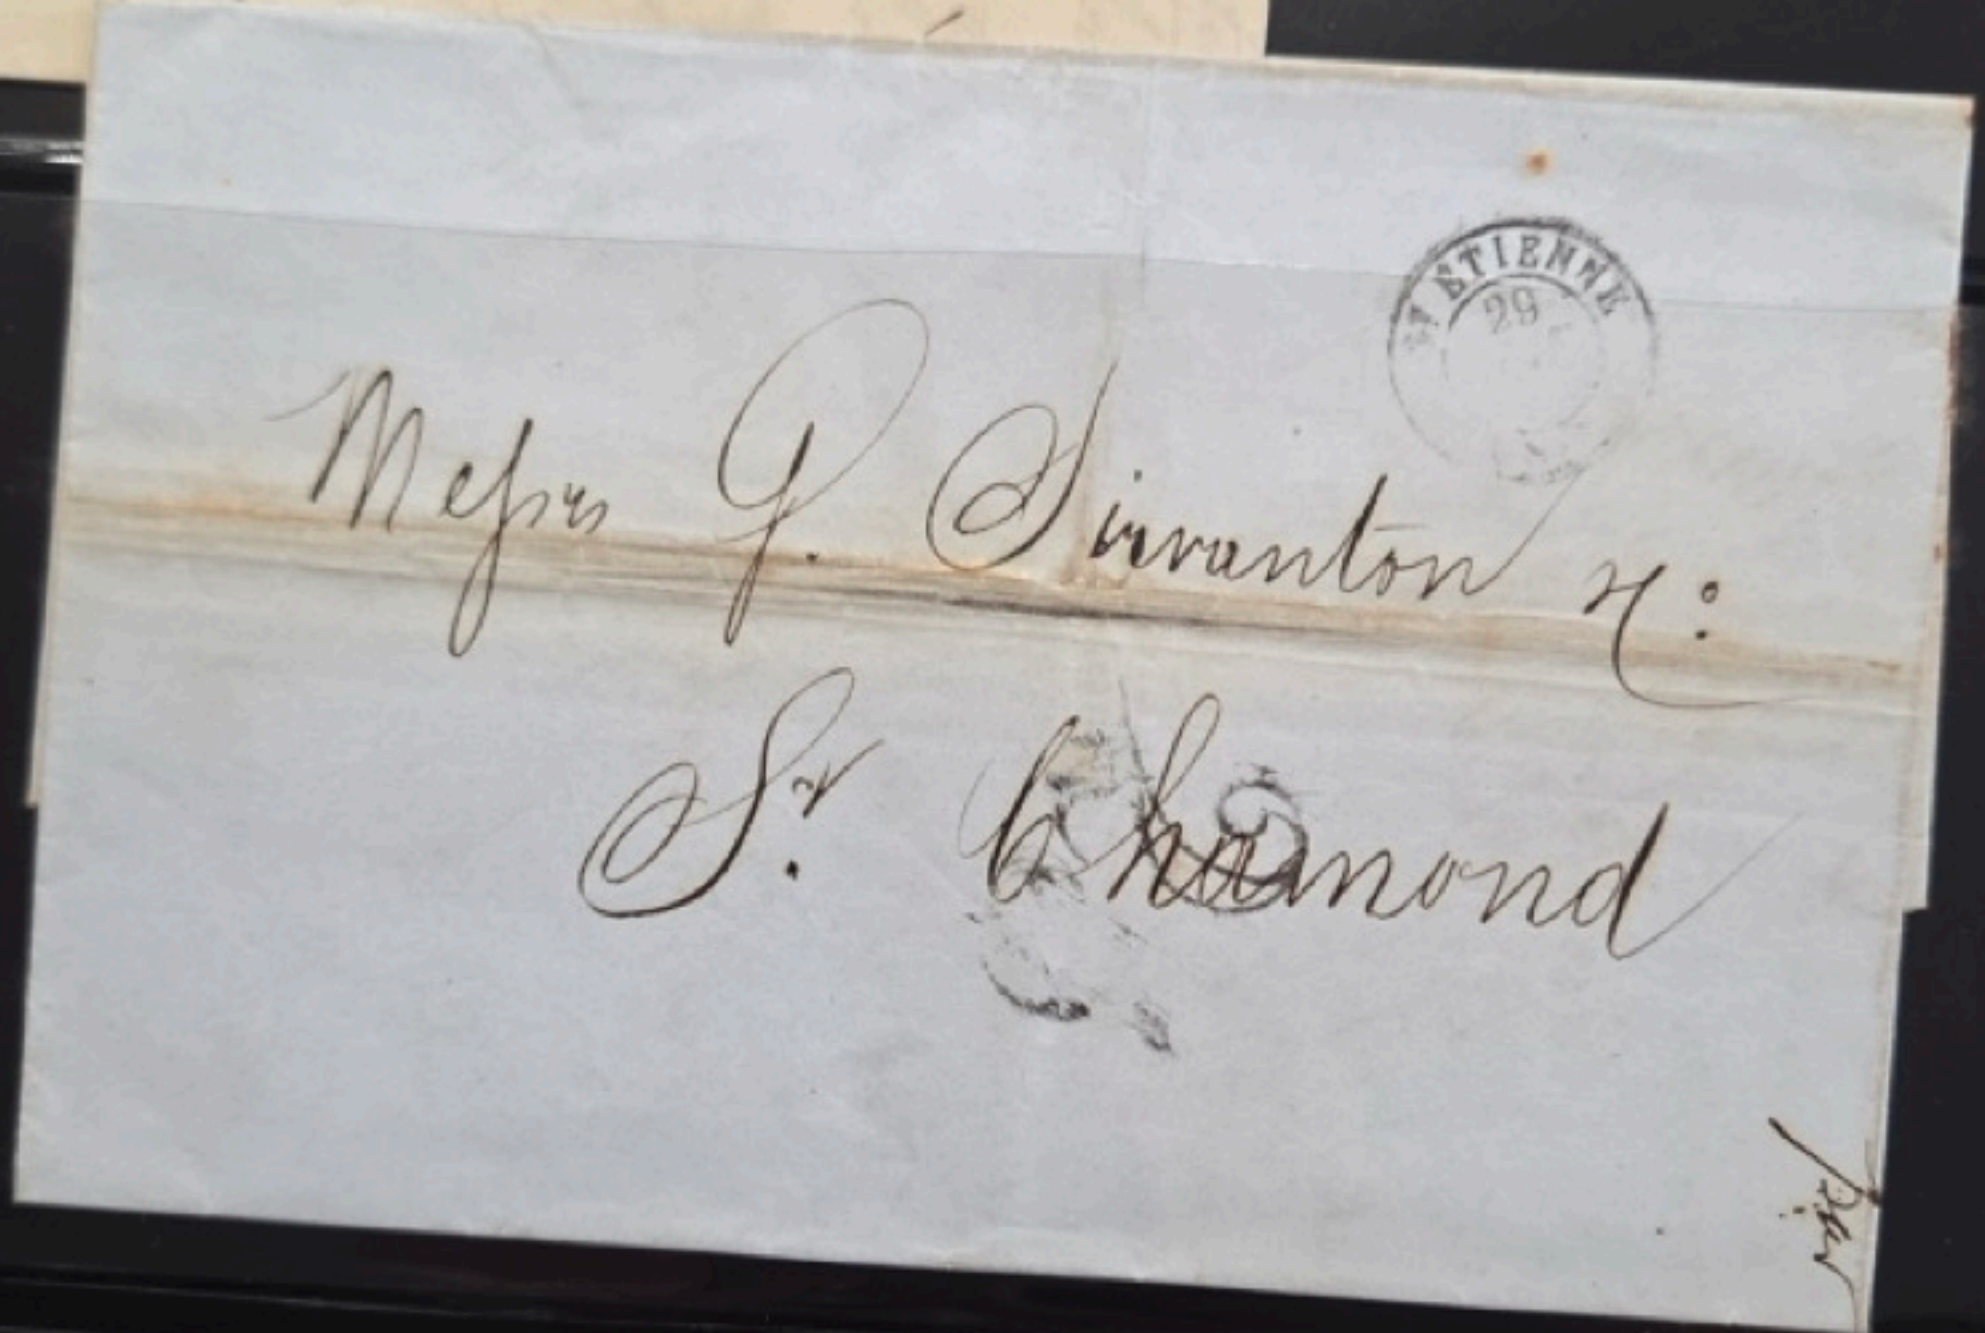 ST ETIENNE
29
Messrs G. Sirvanton &c:
St. Chamond